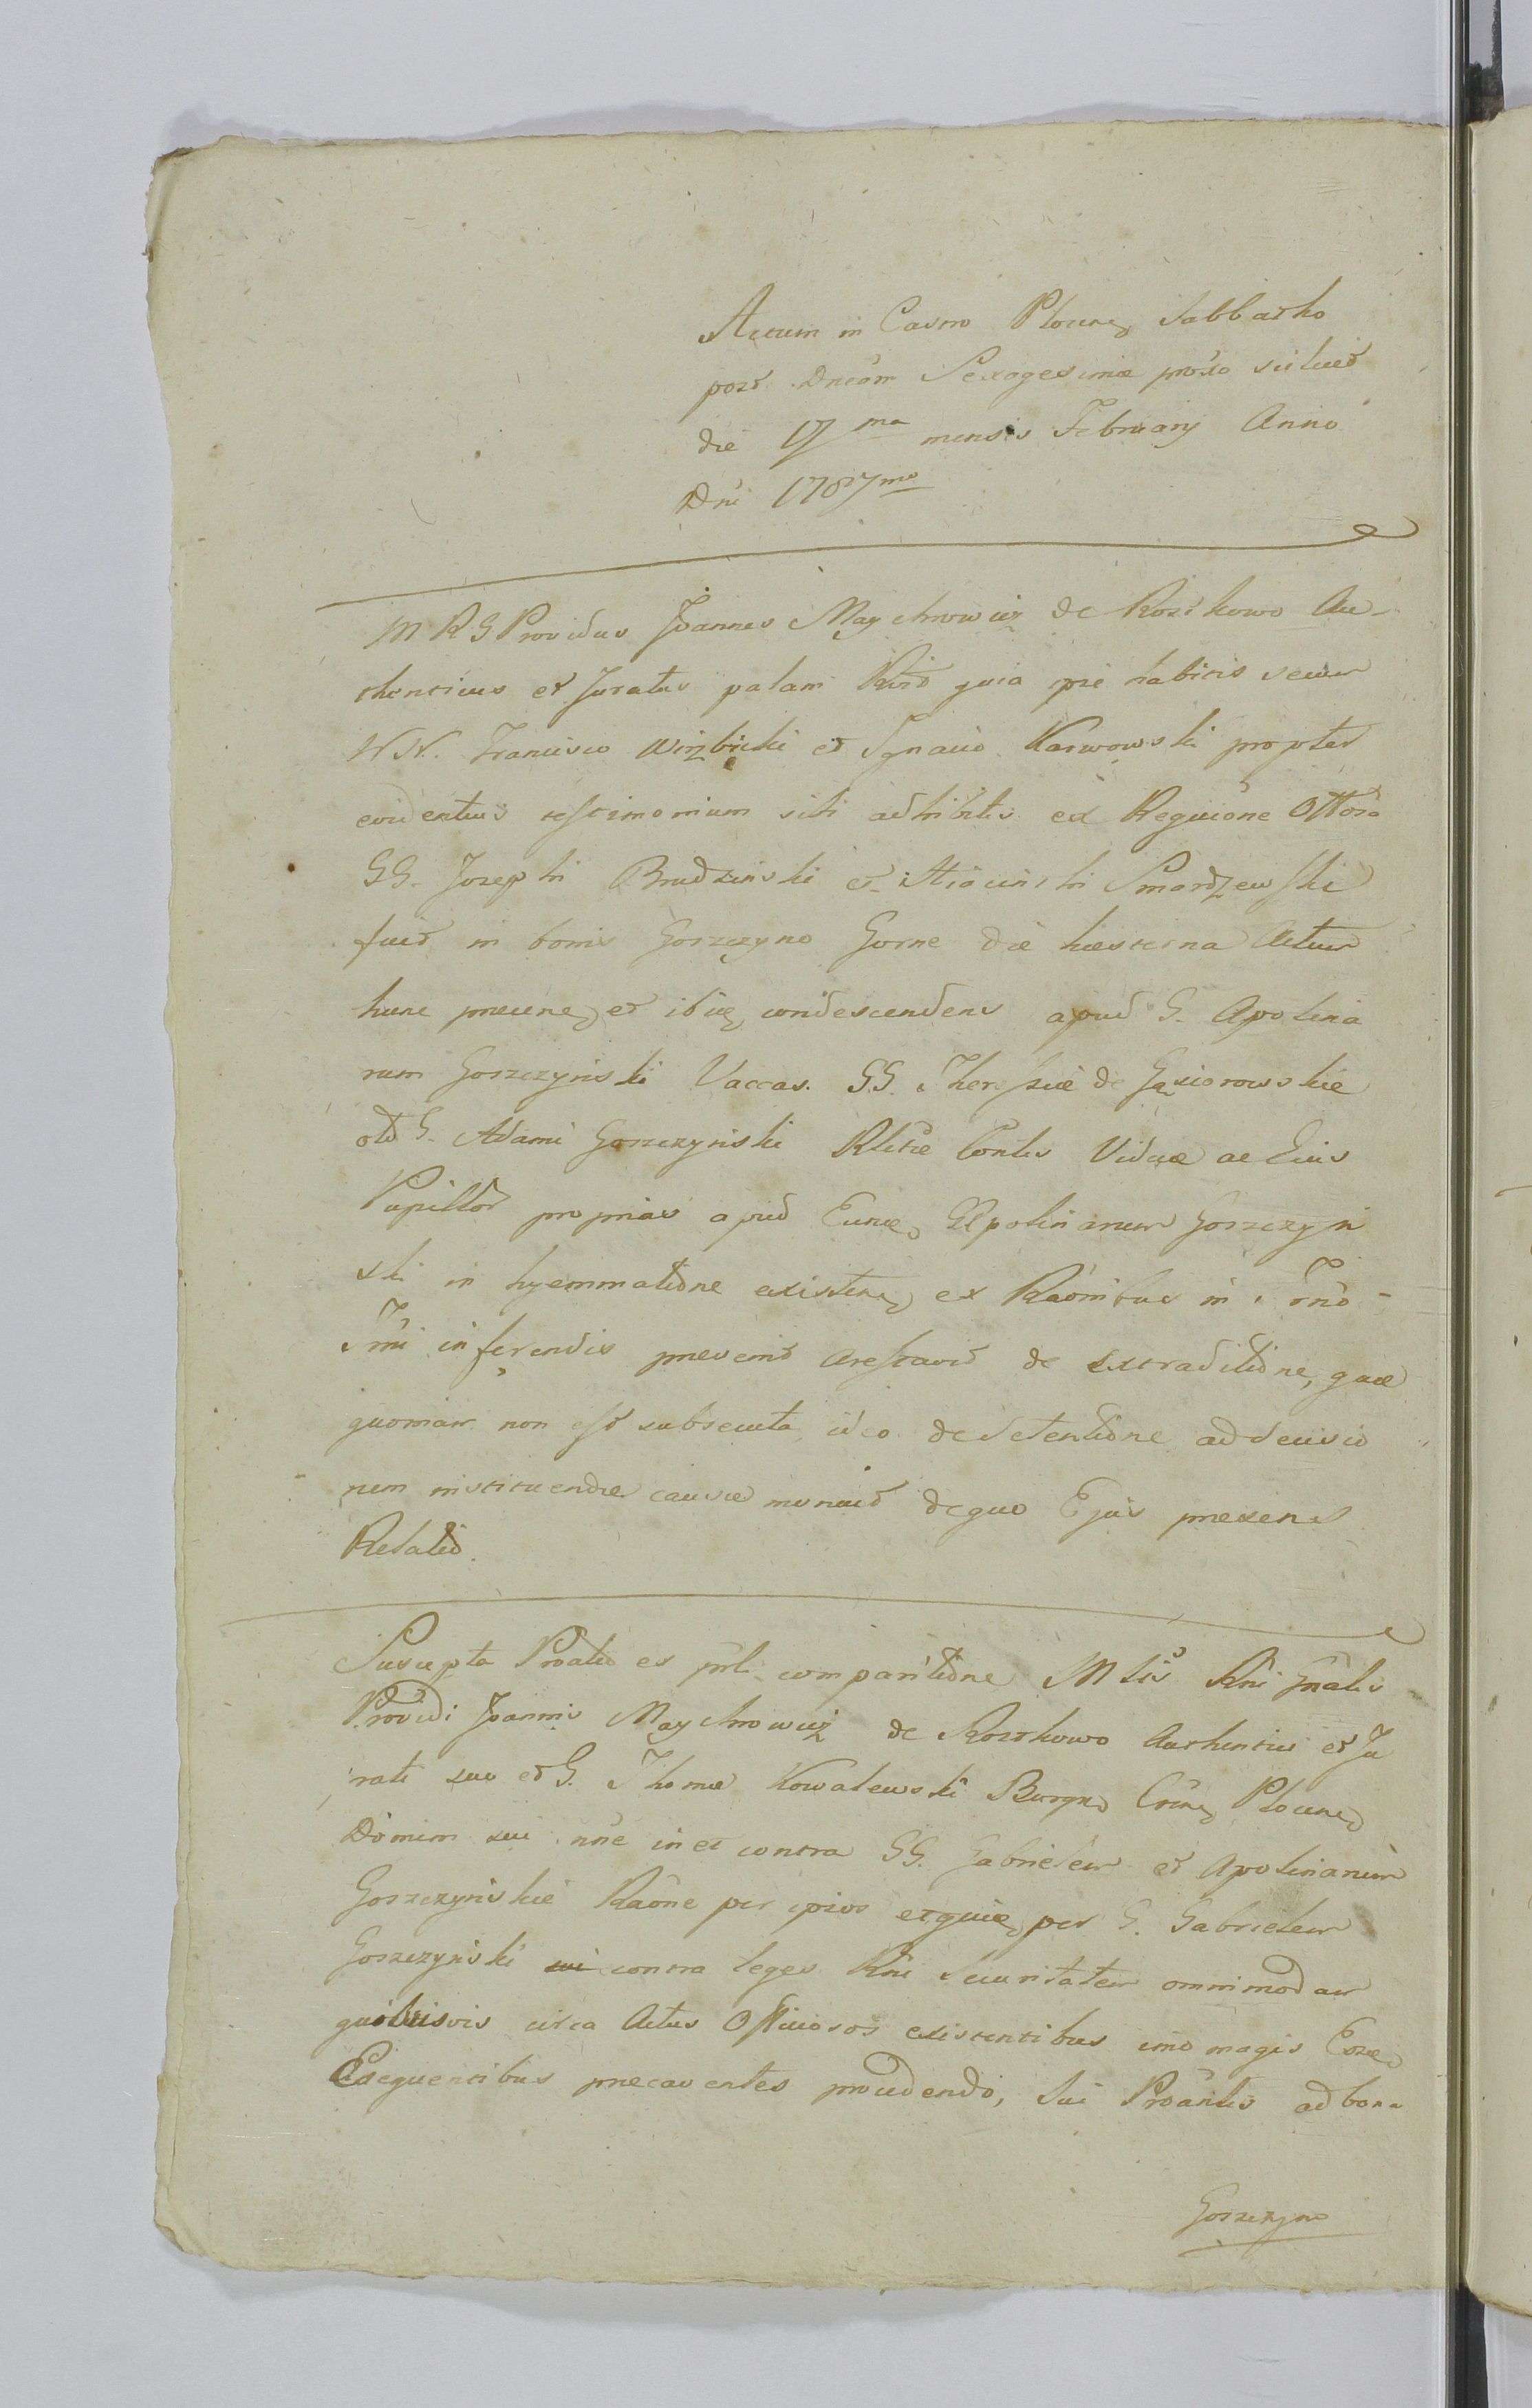 Actum in Castro Plocen Sabbatho
post Dncam Sexagesimæ proxo scilicet
die 17ma mensis February Anno
Dni 1787mo
M R G Providus Joannes Maychrowicz de Roszkowo Au-
thenticus et Juratus palam quia præ habitis secum
NN. Francisco Wirzbicki et Ignacio Karwowski propter
evidentius testimonium sibi adhibitis ex Requisione
GG. Josephi Brudzinski et Hiacinthi Smardzewski
fuit in bonis Gorzezyno Gorne die hesterna Actum
hunc præcene et ibiq condescendens apud G. Apolina
rum Goszczynski Vaccas. GG. Theressiæ de Gąsiorowskie
olt G. Adami Goszczynski Rlictæ Contis Viduæ ac Eius
Pupillor proprias apud Eund Apolinarum Goszczyn
ski in hyemmatione existen ex Raonibus in
inferendis prævenit arestavit de Extraditione, quæ
quoniam non est subsecuta ideo de detentione ad decisio
nem instituendæ causæ monuit de quo Ejus præsens
Relatio.
Suscepta Proatio ex prli comparitione Mtis Rni gnalis
Providi Joannis Maychrowicz de Roszkowo Authentici et Ju
rati suo et G. Thomæ Kowalewski Burgn Crine Plocen
Domini sui nne in et contra GG. Gabrielem et Apolinarum
Goszczynskie Raone per ipsos et per G. Gabrielem
Goszczynski contra leges Rni Securitatem omnimodam
quibusvis circa Actus Officiosos existentibus imo magis
Exequentibus præcaventes procudendo, Sui Proantis ad bona
Goszczyno